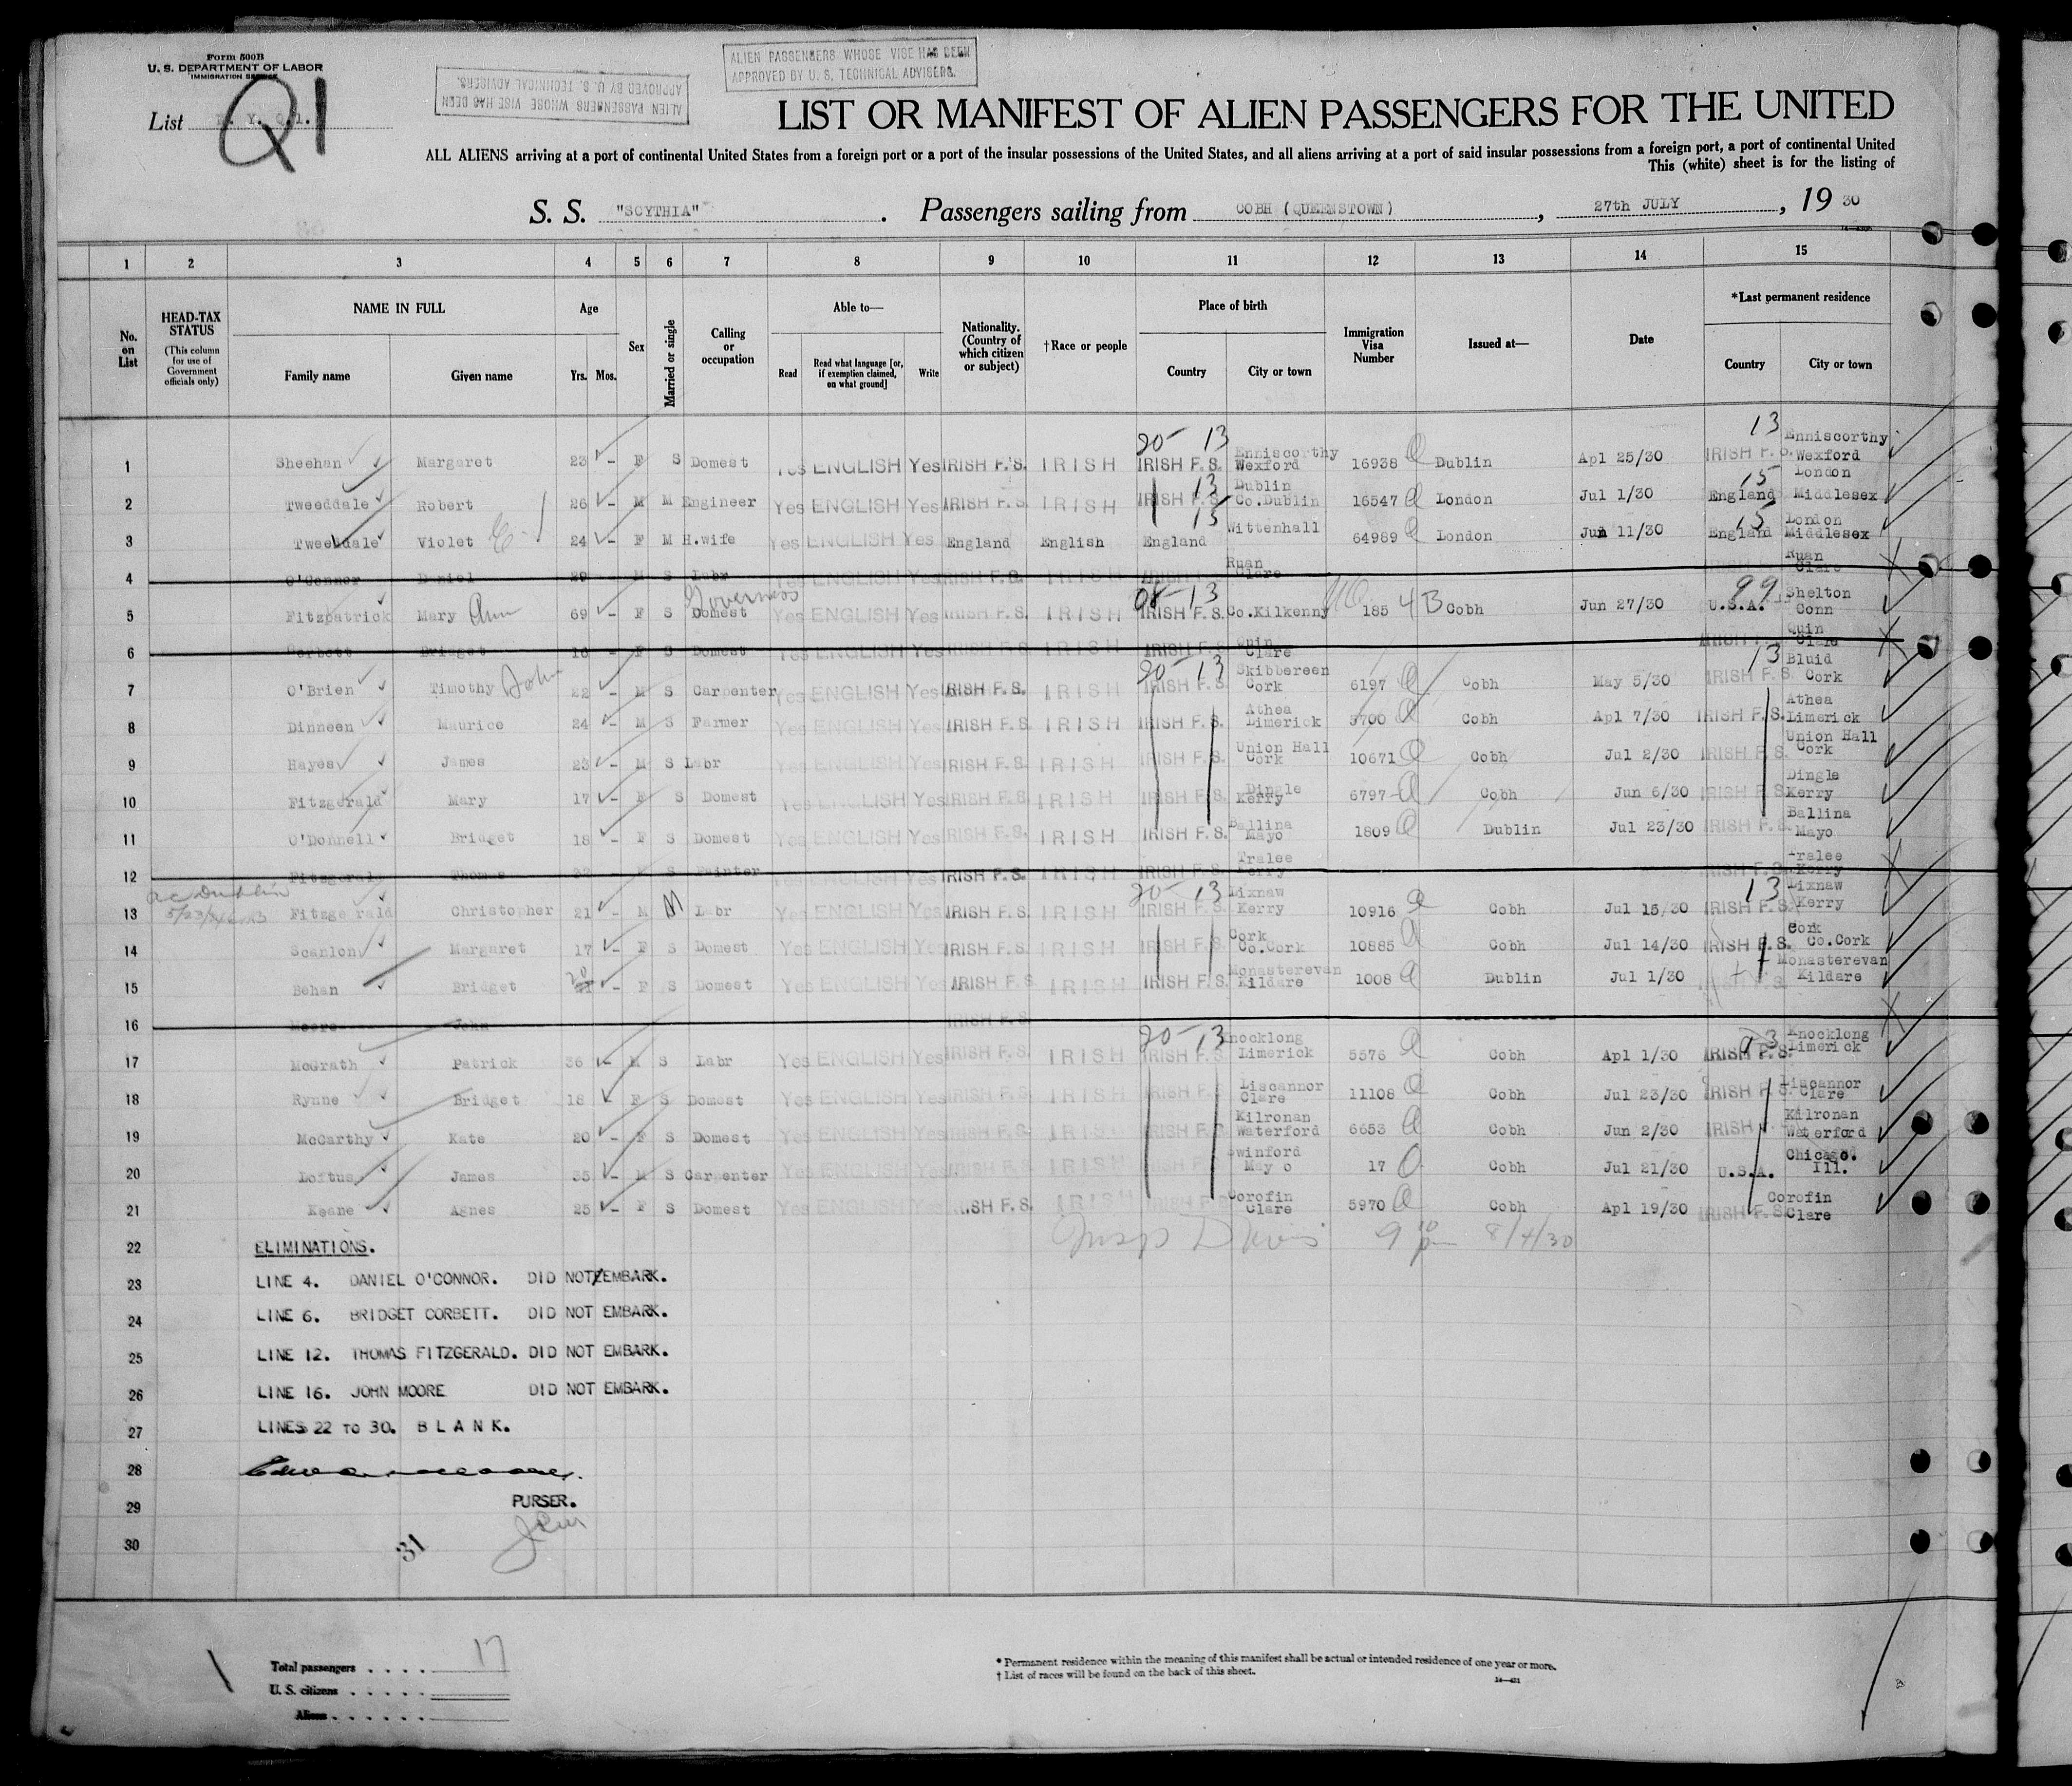 Form 500B
U. S. DEPARTMENT OF LABOR
IMMIGRATION SERVICE
ALIEN PASSENGERS WHOSE VISE HAS BEEN
APPROVED BY U. S. TECHNICAL ADVISERS.
ALIEN PASSENGERS WHOSE VISE HAS BEEN
APPROVED BY U. S. TECHNICAL ADVISERS.
List Q1
LIST OR MANIFEST OF ALIEN PASSENGERS FOR THE UNITED
ALL ALIENS arriving at a port of continental United States from a foreign port or a port of the insular possessions of the United States, and all aliens arriving at a port of said insular possessions from a foreign port, a port of continental United
This (white) sheet is for the listing of
S. S. "SCYTHIA". Passengers sailing from COBH (QUEENSTOWN), 27th JULY, 19 30
1 2 3 4 5 6 7 8 9 10 11 12 13 14 15
No. on List HEAD-TAX STATUS (This column for use of Government officials only) NAME IN FULL Family name Given name Age Yrs. Mos. Sex Married or single Calling or occupation Able to— Read Read what language [or, if exemption claimed, on what ground] Write Nationality. (Country of which citizen or subject) †Race or people Place of birth Country City or town Immigration Visa Number Issued at— Date *Last permanent residence Country City or town
1 Sheehan Margaret 23 - F S Domest Yes ENGLISH Yes IRISH F.S. IRISH 20- 13 IRISH F.S. Enniscorthy Wexford 16938 Dublin Apl 25/30 13 IRISH F.S. Enniscorthy Wexford
2 Tweeddale Robert 26 - M M Engineer Yes ENGLISH Yes IRISH F.S. IRISH 13 IRISH F.S. Dublin Co.Dublin 16547 London Jul 1/30 15 England London Middlesex
3 Tweeddale Violet E. 24 - F M H.wife Yes ENGLISH Yes England English 15 England Wittenhall 64989 London Jun 11/30 15 England London Middlesex
4 O'Connor Daniel 29 M S Labr Yes ENGLISH Yes IRISH F.S. IRISH Ruan Clare Ruan Clare
5 Fitzpatrick Mary Ann 69 - F S Domest Governess Yes ENGLISH Yes IRISH F.S. IRISH 08-13 IRISH F.S. Co.Kilkenny 185 4B Cobh Jun 27/30 99 U.S.A. Shelton Conn
6 Corbett Bridget 18 F S Domest Yes ENGLISH Yes IRISH F.S. IRISH IRISH F.S. Quin Clare IRISH F.S. Quin Clare
7 O'Brien Timothy John 22 - M S Carpenter Yes ENGLISH Yes IRISH F.S. IRISH 20- 13 IRISH F.S. Skibbereen Cork 6197 Cobh May 5/30 13 IRISH F.S. Bluid Cork
8 Dinneen Maurice 24 - M S Farmer Yes ENGLISH Yes IRISH F.S. IRISH IRISH F.S. Athea Limerick 5700 Cobh Apl 7/30 IRISH F.S. Athea Limerick
9 Hayes James 23 - M S Labr Yes ENGLISH Yes IRISH F.S. IRISH IRISH F.S. Union Hall Cork 10671 Cobh Jul 2/30 IRISH F.S. Union Hall Cork
10 Fitzgerald Mary 17 - F S Domest Yes ENGLISH Yes IRISH F.S. IRISH IRISH F.S. Dingle Kerry 6797 Cobh Jun 6/30 IRISH F.S. Dingle Kerry
11 O'Donnell Bridget 18 - F S Domest Yes ENGLISH Yes IRISH F.S. IRISH IRISH F.S. Ballina Mayo 1809 Dublin Jul 23/30 IRISH F.S. Ballina Mayo
12 Fitzgerald Thomas S Painter Yes ENGLISH Yes IRISH F.S. IRISH IRISH F.S. Tralee Kerry IRISH F.S. Tralee Kerry
13 Fitzgerald Christopher 21 - M M Labr Yes ENGLISH Yes IRISH F.S. IRISH 20- 13 IRISH F.S. Lixnaw Kerry 10916 Cobh Jul 15/30 13 IRISH F.S. Lixnaw Kerry
14 Scanlon Margaret 17 - F S Domest Yes ENGLISH Yes IRISH F.S. IRISH IRISH F.S. Cork Co.Cork 10885 Cobh Jul 14/30 IRISH F.S. Cork Co.Cork
15 Behan Bridget 20 21 - F S Domest Yes ENGLISH Yes IRISH F.S. IRISH IRISH F.S. Monasterevan Kildare 1008 Dublin Jul 1/30 IRISH F.S. Monasterevan Kildare
16 Moore John IRISH F.S.
17 McGrath Patrick 36 - M S Labr Yes ENGLISH Yes IRISH F.S. IRISH 20- 13 IRISH F.S. Knocklong Limerick 5576 Cobh Apl 1/30 IRISH F.S. Knocklong Limerick
18 Rynne Bridget 18 - F S Domest Yes ENGLISH Yes IRISH F.S. IRISH IRISH F.S. Liscannor Clare 11108 Cobh Jul 23/30 IRISH F.S. Liscannor Clare
19 McCarthy Kate 20 - F S Domest Yes ENGLISH Yes IRISH F.S. IRISH IRISH F.S. Kilronan Waterford 6653 Cobh Jun 2/30 IRISH Kilronan Waterford
20 Loftus James 35 - M S Carpenter Yes ENGLISH Yes IRISH F.S. IRISH IRISH F.S. Swinford Mayo 17 Cobh Jul 21/30 U.S.A. Chicago. Ill.
21 Keane Agnes 25 - F S Domest Yes ENGLISH Yes IRISH F.S. IRISH IRISH F.S. Corofin Clare 5970 Cobh Apl 19/30 IRISH F.S. Corofin Clare
22 ELIMINATIONS. 8/4/30
23 LINE 4. DANIEL O'CONNOR. DID NOT EMBARK.
24 LINE 6. BRIDGET CORBETT. DID NOT EMBARK.
25 LINE 12. THOMAS FITZGERALD. DID NOT EMBARK.
26 LINE 16. JOHN MOORE DID NOT EMBARK.
27 LINES 22 TO 30. BLANK.
28
29 PURSER.
30
31
Total passengers . . . . 17
U. S. citizens . . . . .
Aliens . . . . . .
* Permanent residence within the meaning of this manifest shall be actual or intended residence of one year or more.
† List of races will be found on the back of this sheet.